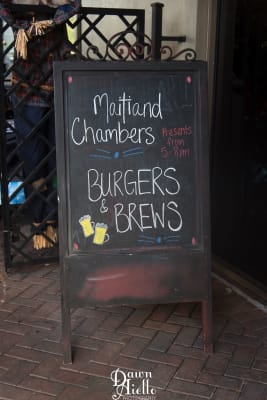 Maitland
Chambers
Presents
from
5-8pm
BURGERS
&
BREWS
Dawn
Aiello